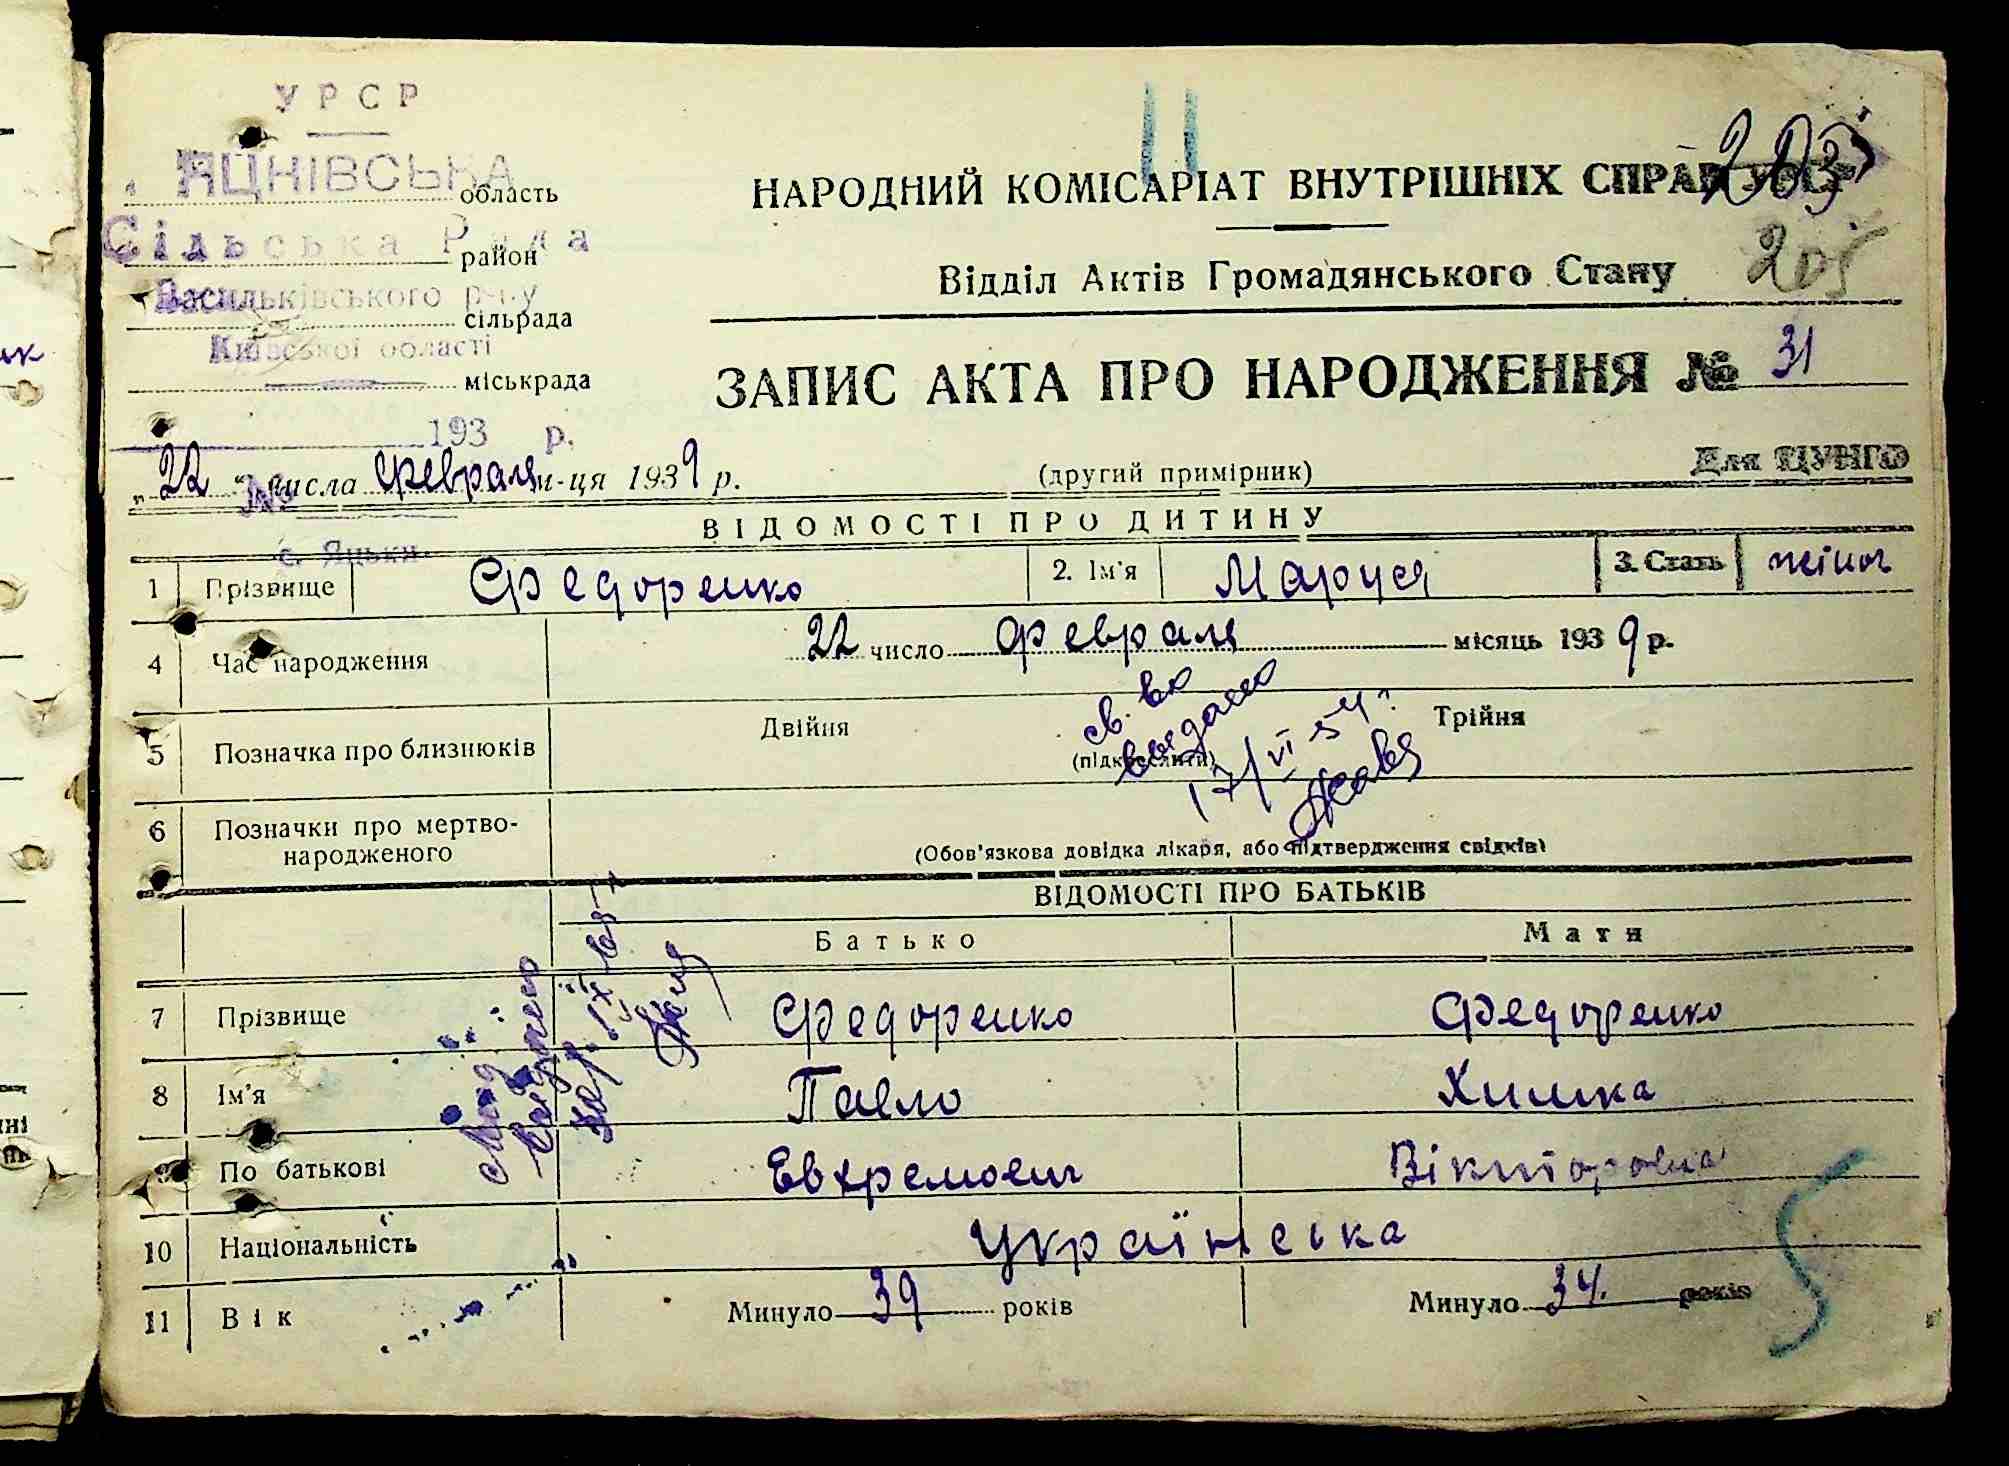 УРСР
ЯЦНІВСЬКА область
Сільська Рада район
Васильківського р-ну сільрада
Київської області міськрада
193 р.
№
с. Яцьки
НАРОДНИЙ КОМІСАРІАТ ВНУТРІШНІХ СПРАВ УРСР
203
Відділ Актів Громадянського Стану
205
ЗАПИС АКТА ПРО НАРОДЖЕННЯ № 31
„22“ числа февраля м-ця 1939 р.
(другий примірник)
Для ЦУНГО
ВІДОМОСТІ ПРО ДИТИНУ
1 Прізвище Федоренко 2. Ім'я Маруся 3. Стать жіноч
4 Час народження 22 число февраля місяць 1939 р.
5 Позначка про близнюків Двійня (підкреслити) Трійня
св. во
выдано
17/VI 54 г.
6 Позначки про мертво-
народженого
(Обов'язкова довідка лікаря, або підтвердження свідків)
ВІДОМОСТІ ПРО БАТЬКІВ
Батько Мати
7 Прізвище Федоренко Федоренко
8 Ім'я Павло Химка
9 По батькові Евхремович Вікторовна
10 Національність Українська
11 Вік Минуло 39 років Минуло 34. років